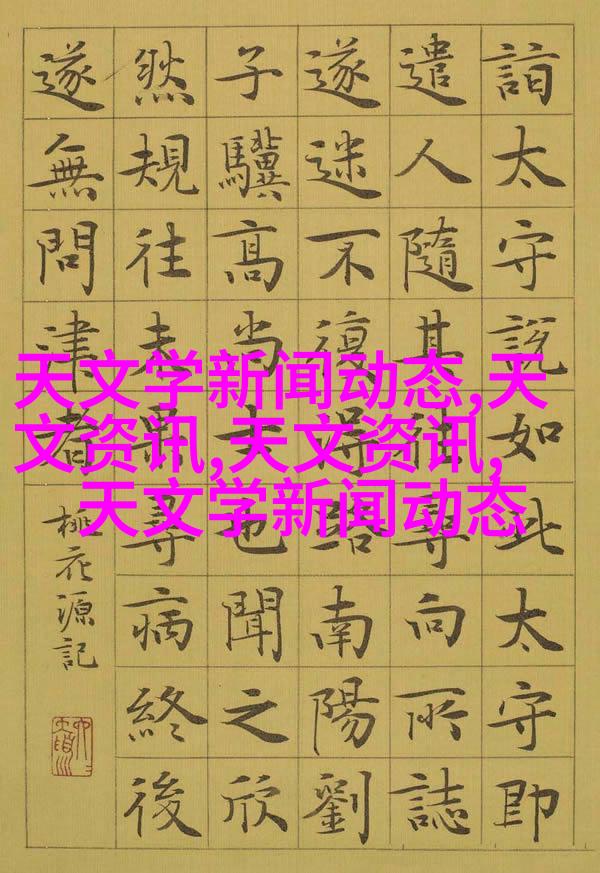 詣太守說如此太守即
遣人隨其往尋向所誌
遂迷不復得路南陽劉
子驥高尚士也聞之欣
然規往未果尋病終後
遂無問津者
桃花源記
天文学新闻动态,天
文资讯,天文资讯,
天文学新闻动态